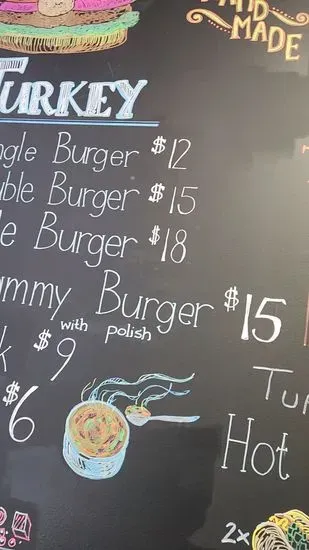 HAND
MADE
TURKEY
ngle Burger $12
uble Burger $15
le Burger $18
ammy Burger $15
with polish
k $9
$6
Tur
Hot
2x